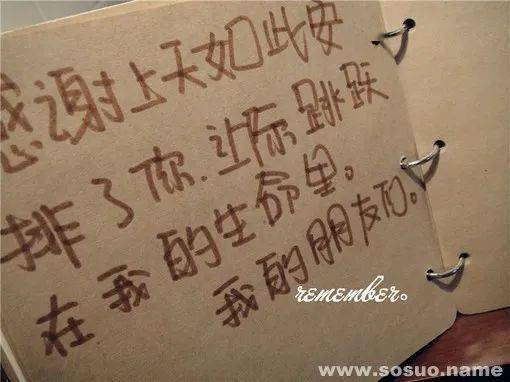 感谢上天如此安
排了你.让你跳跃
在我的生命里。
我的朋友们。
remember。
www.sosuo.name